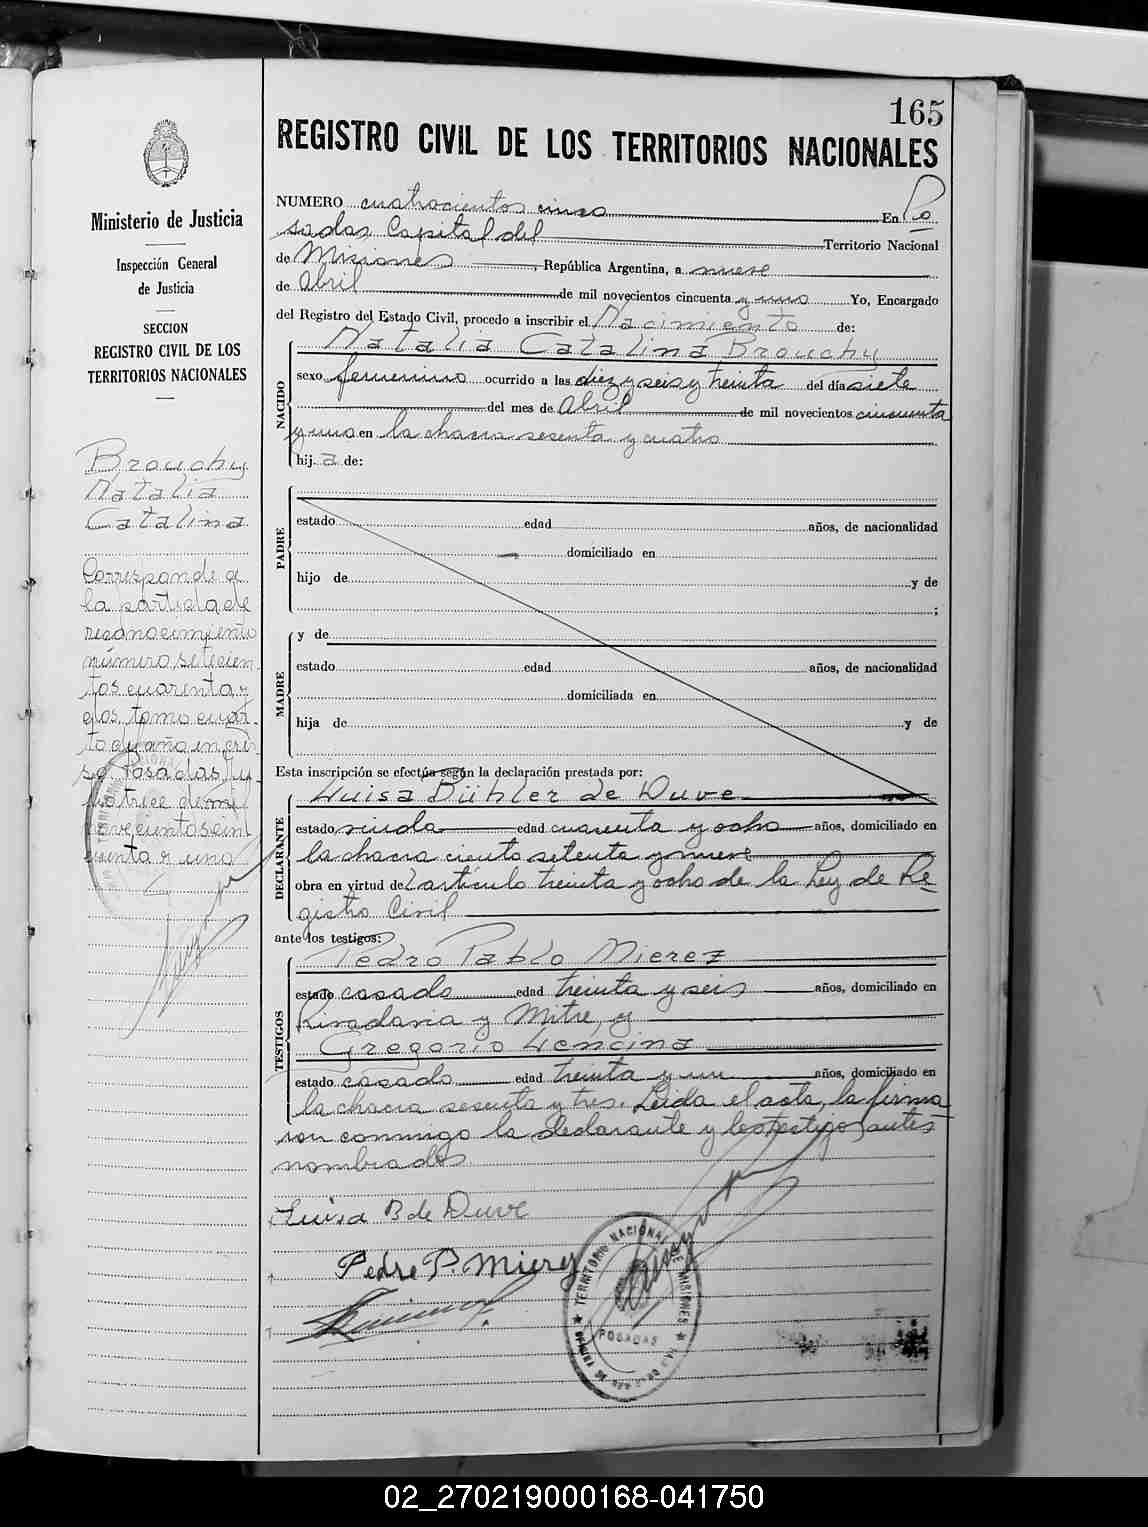 165
REGISTRO CIVIL DE LOS TERRITORIOS NACIONALES
Ministerio de Justicia
Inspección General
de Justicia
SECCION
REGISTRO CIVIL DE LOS
TERRITORIOS NACIONALES
Brouchy
Natalia
Catalina
Corresponde a
la partida de
reconocimiento
número setecien-
tos cuarenta y
dos, tomo cuar-
to del año en cur-
so. Posadas, Ju-
lio trece de mil
novecientos cin
cuenta y uno
NUMERO cuatrocientos cinco En Po
sadas Capital del Territorio Nacional
de Misiones, República Argentina, a nueve
de Abril de mil novecientos cincuenta y uno Yo, Encargado
del Registro del Estado Civil, procedo a inscribir el Nacimiento de:
NACIDO
Natalia Catalina Brouchy
sexo femenino ocurrido a las diez y seis y treinta del día siete
del mes de Abril de mil novecientos cincuenta
y uno en la chacra sesenta y cuatro
hij a de:
PADRE
estado edad años, de nacionalidad
domiciliado en
hijo de y de
;
MADRE
y de
estado edad años, de nacionalidad
domiciliada en
hija de y de
Esta inscripción se efectúa según la declaración prestada por:
DECLARANTE
Luisa Bühler de Duve
estado viuda edad cuarenta y ocho años, domiciliado en
la chacra ciento setenta y nueve
obra en virtud del artículo treinta y ocho de la Ley de Re
gistro Civil
ante los testigos:
TESTIGOS
Pedro Pablo Mierez
estado casado edad treinta y seis años, domiciliado en
Rivadavia y Mitre, y
Gregorio Lencina
estado casado edad treinta y un años, domiciliado en
la chacra sesenta y tres. Leida el acta, la firma
ron conmigo la declarante y los testigos antes
nombrados
Luisa B de Duve
Pedro P. Mierez
TERRITORIO NACIONAL DE MISIONES
POSADAS
02_270219000168-041750